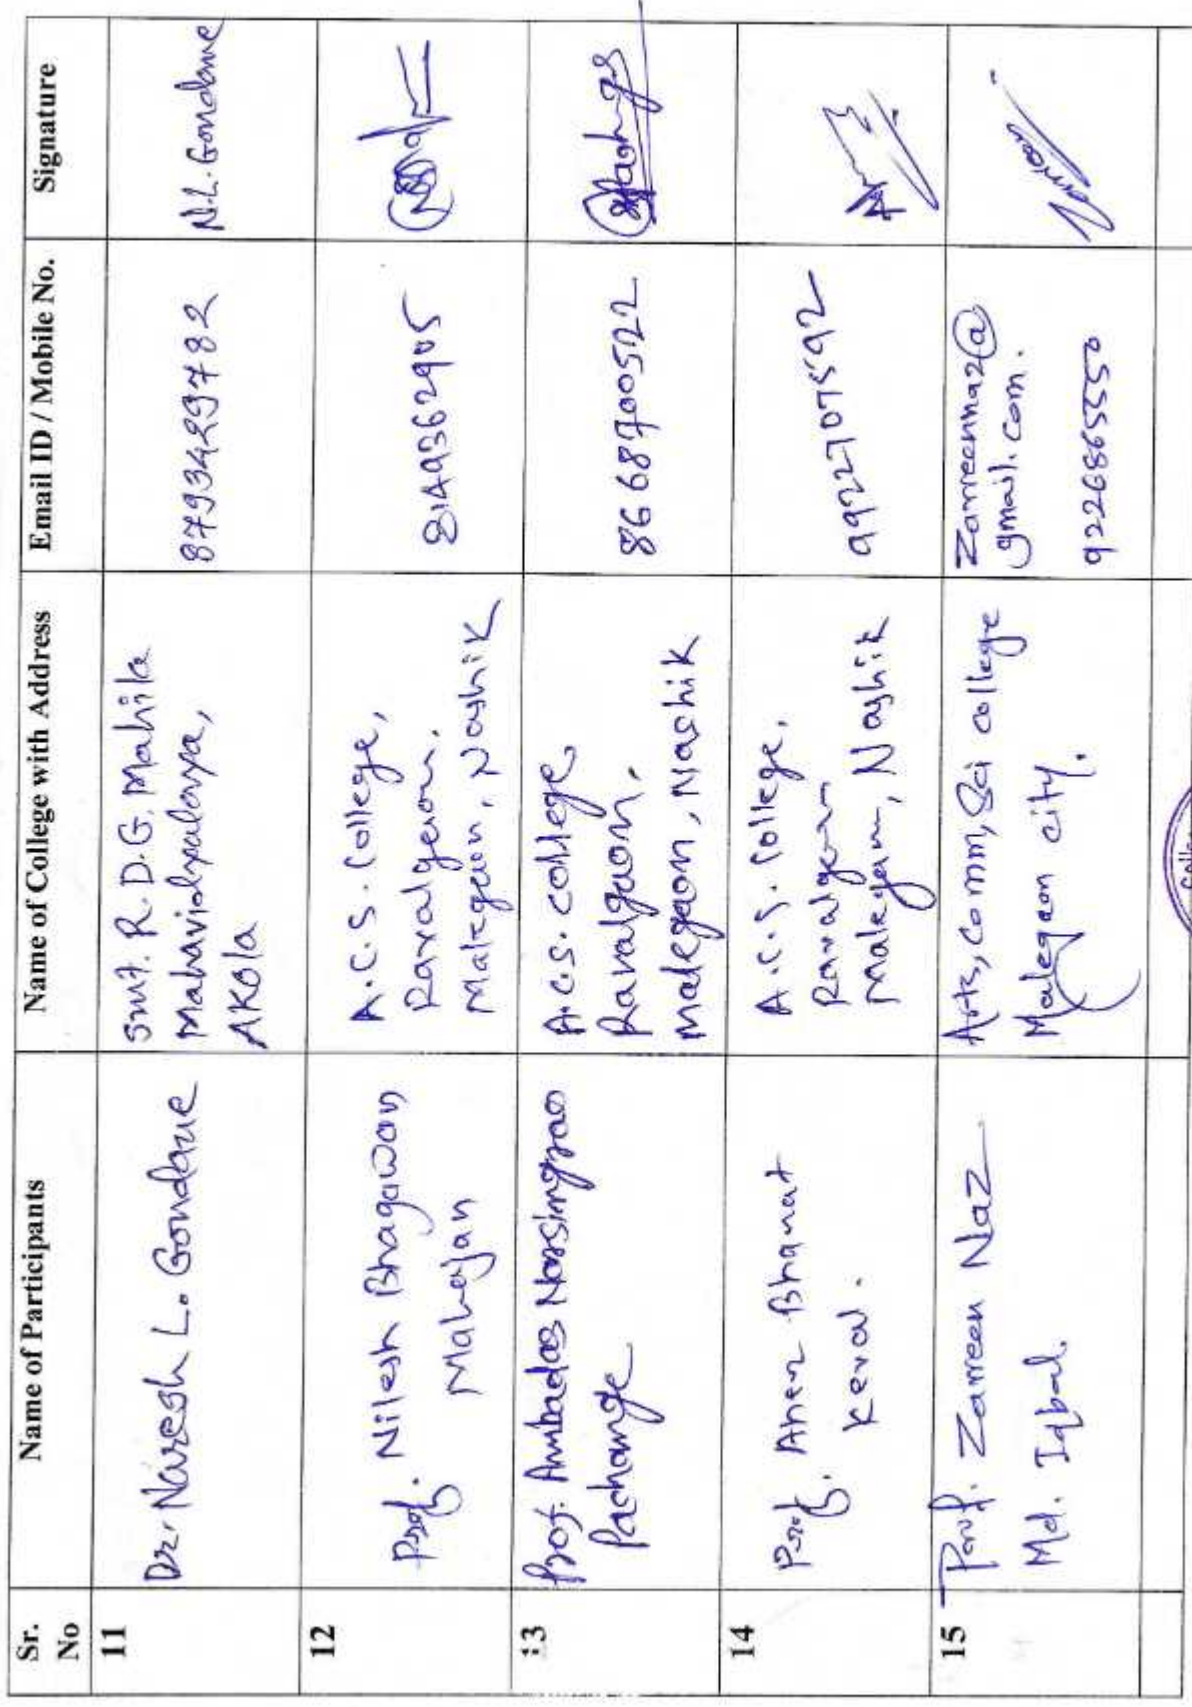 Sr. No
Name of Participants
Name of College with Address
Email ID / Mobile No.
Signature
11
Dr. Naresh L. Gondane
Smt. R. D. G. Mahila
Mahavidyalaya,
AKola
8793429782
N.L. Gondane
12
Prof. Nilesh Bhagawan
Mahajan
A.C.S. College,
Ravalgaon,
Malegaon, Nashik
8149362905
13
Prof. Ambadas Narsingrao
Pachange
A.C.S. college,
Ravalgaon,
Malegaon, Nashik
8668700522
14
Prof. Aher Bharat
Keval.
A.C.S. College,
Ravalgaon
Malegaon, Nashik
15
Prof. Zarreen Naz
Md. Iqbal.
Arts, Comm, Sci college
Malegaon city.
Zarreennaz@
gmail.com.
9226865550